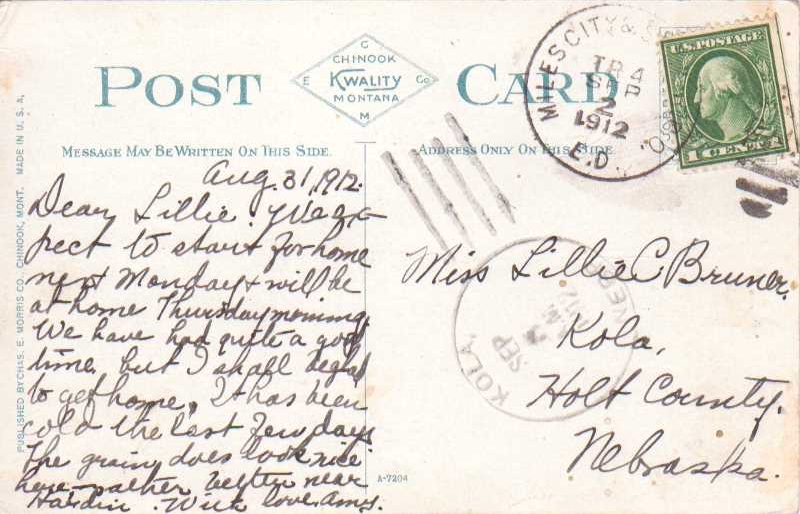 POST CARD
C
CHINOOK
E KWALITY Co
MONTANA
M
MESSAGE MAY BE WRITTEN ON THIS SIDE.
ADDRESS ONLY ON THIS SIDE.
MILES CITY &
TR 4
SEP
2
1912
E.D.
U.S. POSTAGE
1 CENT 1
Aug. 31, 1912.
Dear Lillie. We ex-
pect to start for home
next Monday & will be
at home Thursday morning.
We have had quite a good
time but I shall be glad
to get home. It has been
cold the last few days
The grain does look nice
here - rather better near
Hardin. With love. Amy.
Miss Lillie C Bruner.
Kola,
Holt County.
Nebraska.
KOLA,
SEP
A-7204
PUBLISHED BY CHAS. E. MORRIS CO. CHINOOK, MONT. MADE IN U. S. A.